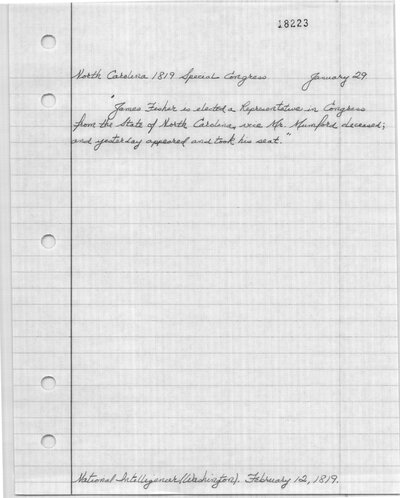 18223
North Carolina 1819 Special Congress January 29
"James Fisher is elected a Representative in Congress
from the State of North Carolina, vice Mr. Mumford deceased;
and yesterday appeared and took his seat."
National Intelligencer (Washington). February 12, 1819.